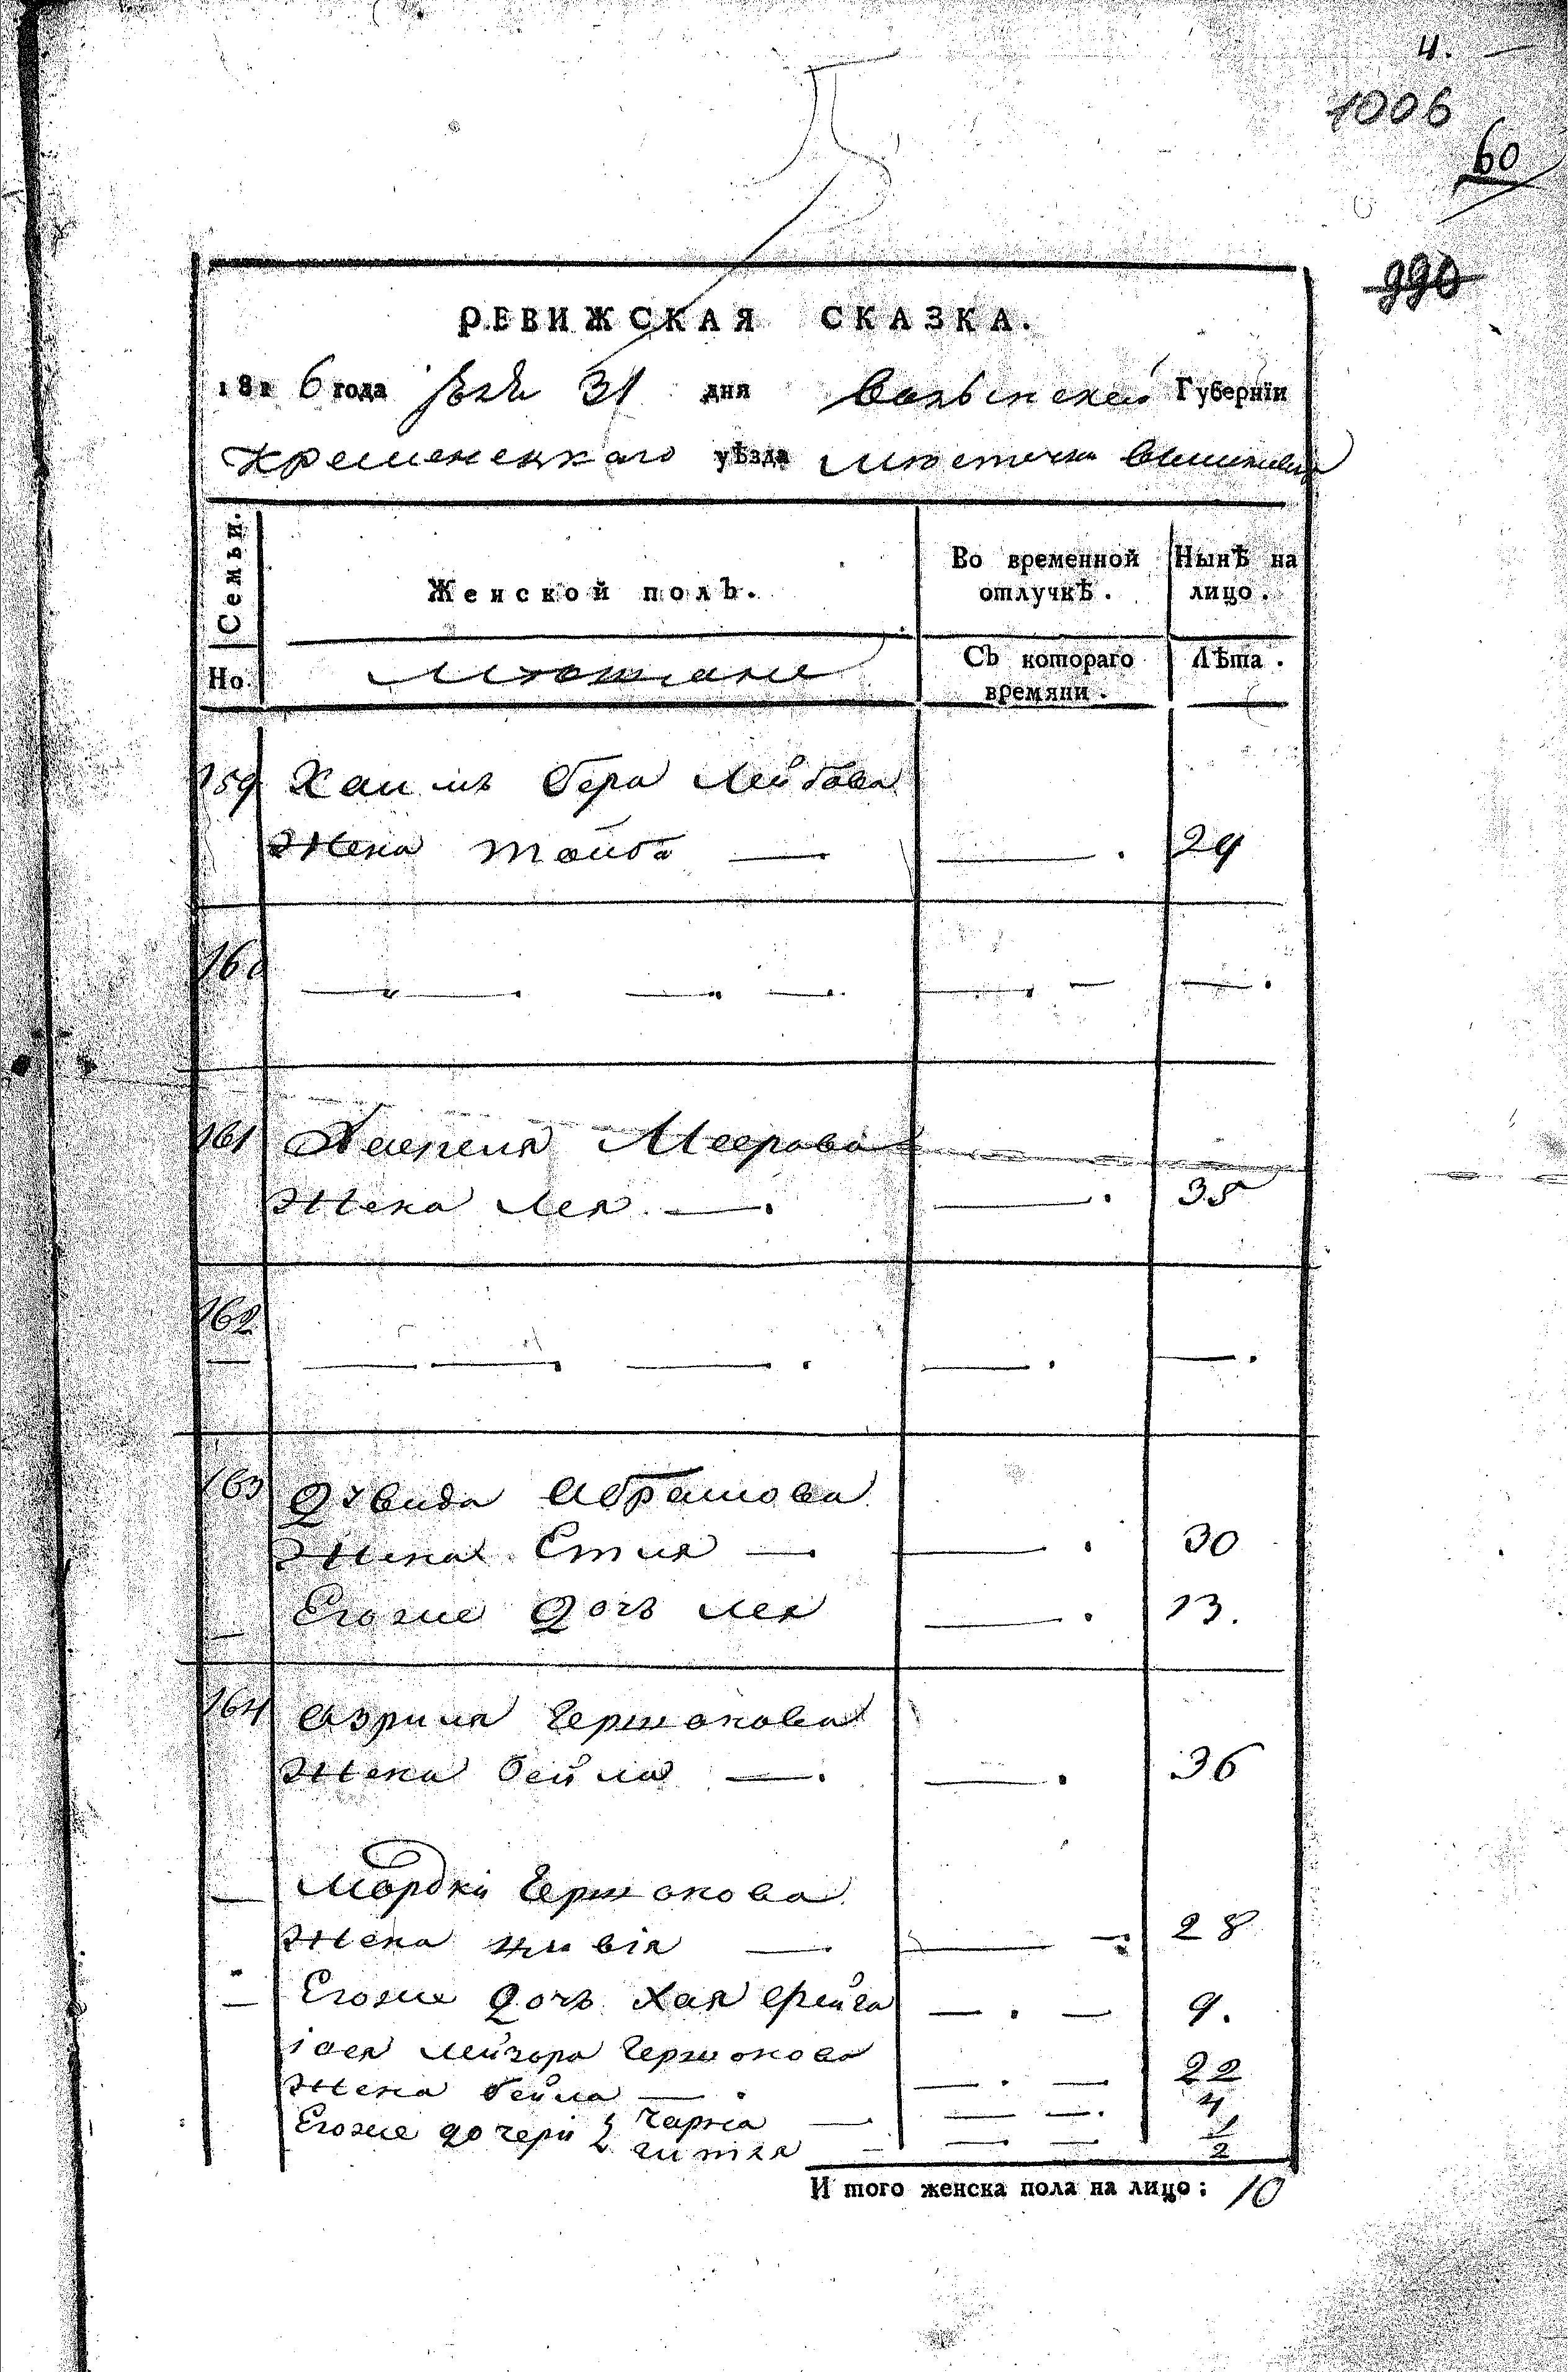 4.
1006
60
990
РЕВИЖСКАЯ СКАЗКА.
181 6 года 31 дня Волынской Губернїи
Кременецкаго уѣзда Мѣстечка Вишневца
Семьи.
Женской полъ.
Во временной отлучкѣ.
Нынѣ на лицо.
Но.
Мѣщане
Съ котораго времяни.
Лѣта.
159 Хаимъ Бера Лейбова
Жена Тайба — — . 29
160 — — . — — . — — .
161 Меерова
Жена Лея — . — . 35
162 — — . — . — . — .
163 Давида Абрамова
Жена Етля — . — . 30
Егоже дочь Лея — . 13.
164 Азриля Гершонова
Жена Бейла — . — . 36
Мордки Гершонова
Жена Цивія — . — — . 28
Егоже дочь Хая Фрейга — . — 9.
Лейзора Гершонова
Жена Бейла — . — . — 22
Егоже дочери { Чарна — — — . 4
Гитля — — . — 1/2
И того женска пола на лицо: 10